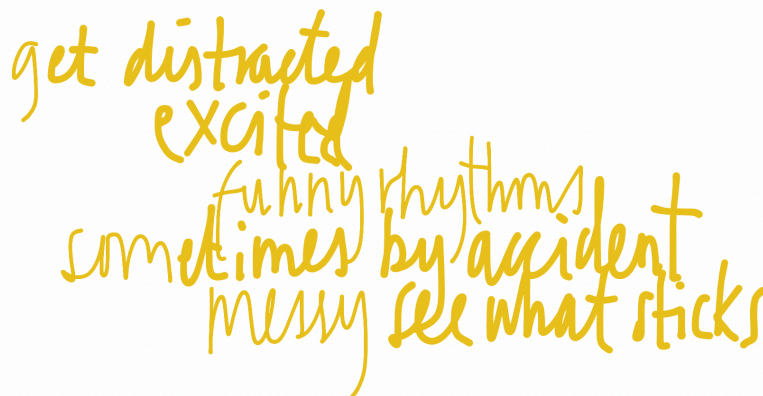 get distracted
excited
funny rhythms
sometimes by accident
messy see what sticks